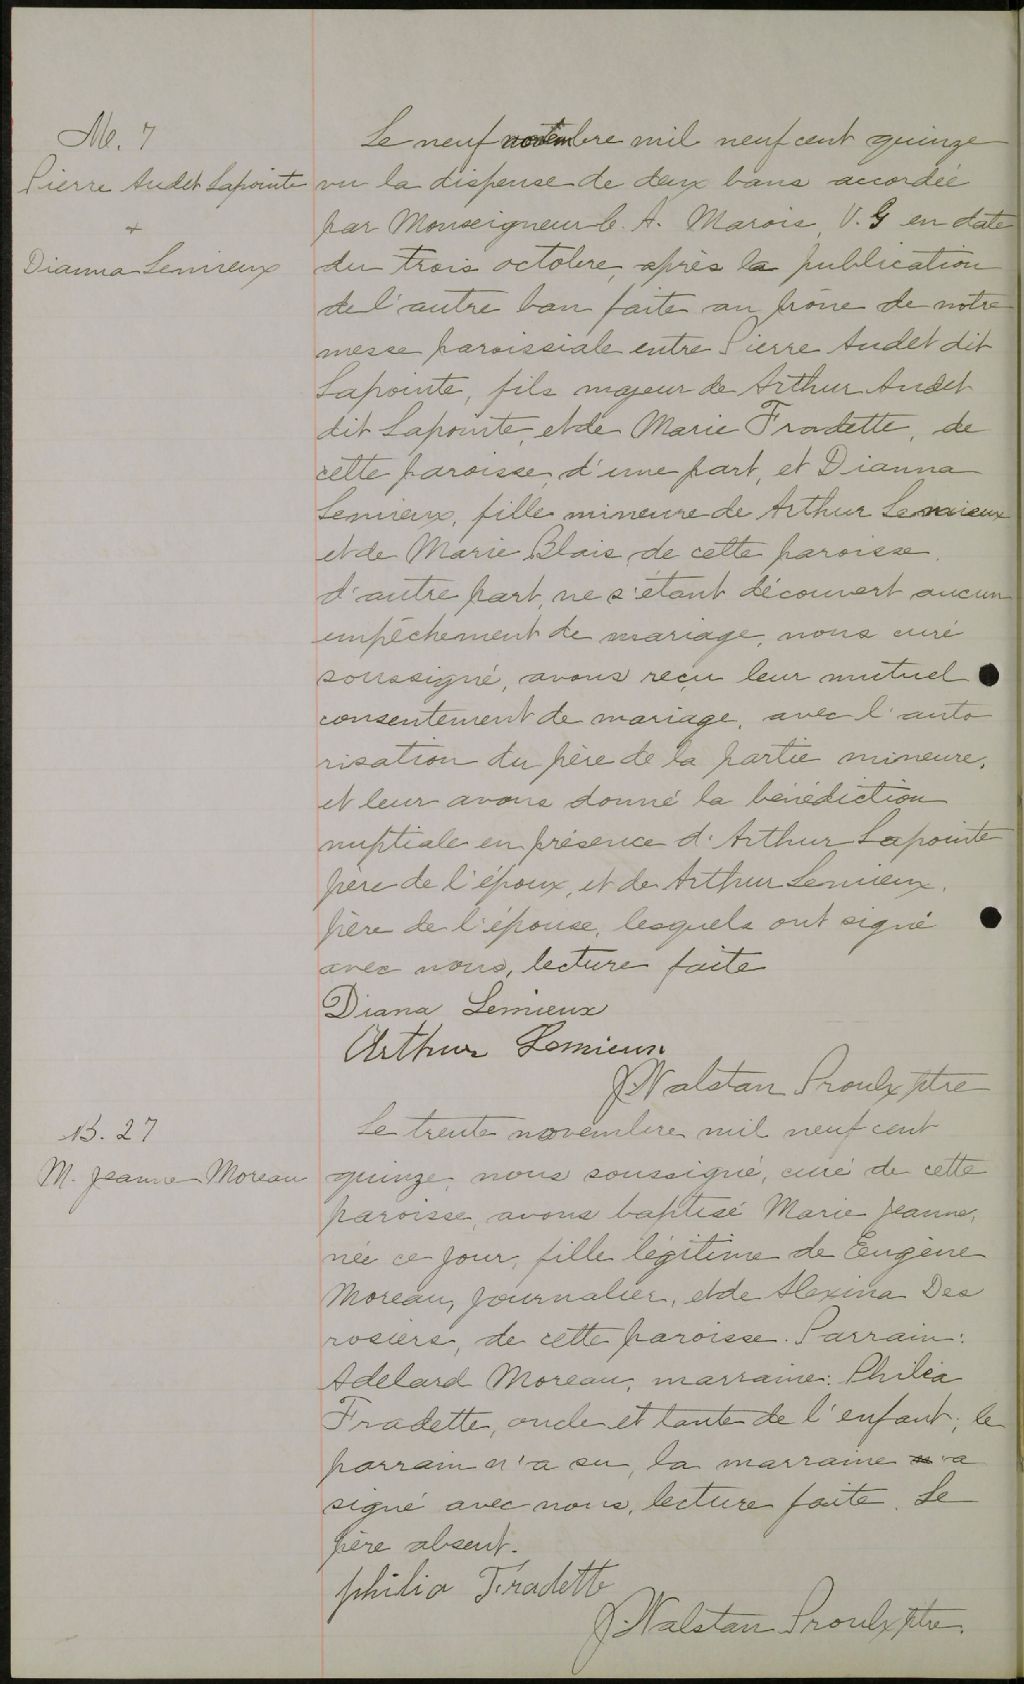 M. 7
Pierre Audet Lapointe
+
Dianna Lemieux
Le neuf novembre mil neuf cent quinze
vu la dispense de deux bans accordée
par Monseigneur C. A. Marois, V. G en date
du trois octobre, après la publication
de l'autre ban faite au prône de notre
messe paroissiale entre Pierre Audet dit
Lapointe, fils majeur de Arthur Audet
dit Lapointe, et de Marie Fradette, de
cette paroisse, d'une part, et Dianna
Lemieux, fille mineure de Arthur Lemieux
et de Marie Blais de cette paroisse.
d'autre part, ne s'étant découvert aucun
empêchement de mariage, nous curé
soussigné, avons reçu leur mutuel
consentement de mariage, avec l'auto
risation du père de la partie mineure,
et leur avons donné la bénédiction
nuptiale en présence d'Arthur Lapointe
père de l'époux, et de Arthur Lemieux,
père de l'épouse, lesquels ont signé
avec nous, lecture faite
Diana Lemieux
Arthur Lemieux
J. Walstan Proulx ptre
B. 27
M. Jeanne Moreau
Le trente novembre mil neuf cent
quinze, nous soussigné, curé de cette
paroisse, avons baptisé Marie Jeanne,
née ce jour, fille légitime de Eugène
Moreau, journalier, et de Alexina Des
rosiers, de cette paroisse. Parrain:
Adelard Moreau, marraine: Philia
Fradette, oncle et tante de l'enfant; le
parrain n'a su, la marraine a
signé avec nous, lecture faite. Le
père absent.
Philia Fradette
J. Walstan Proulx ptre.